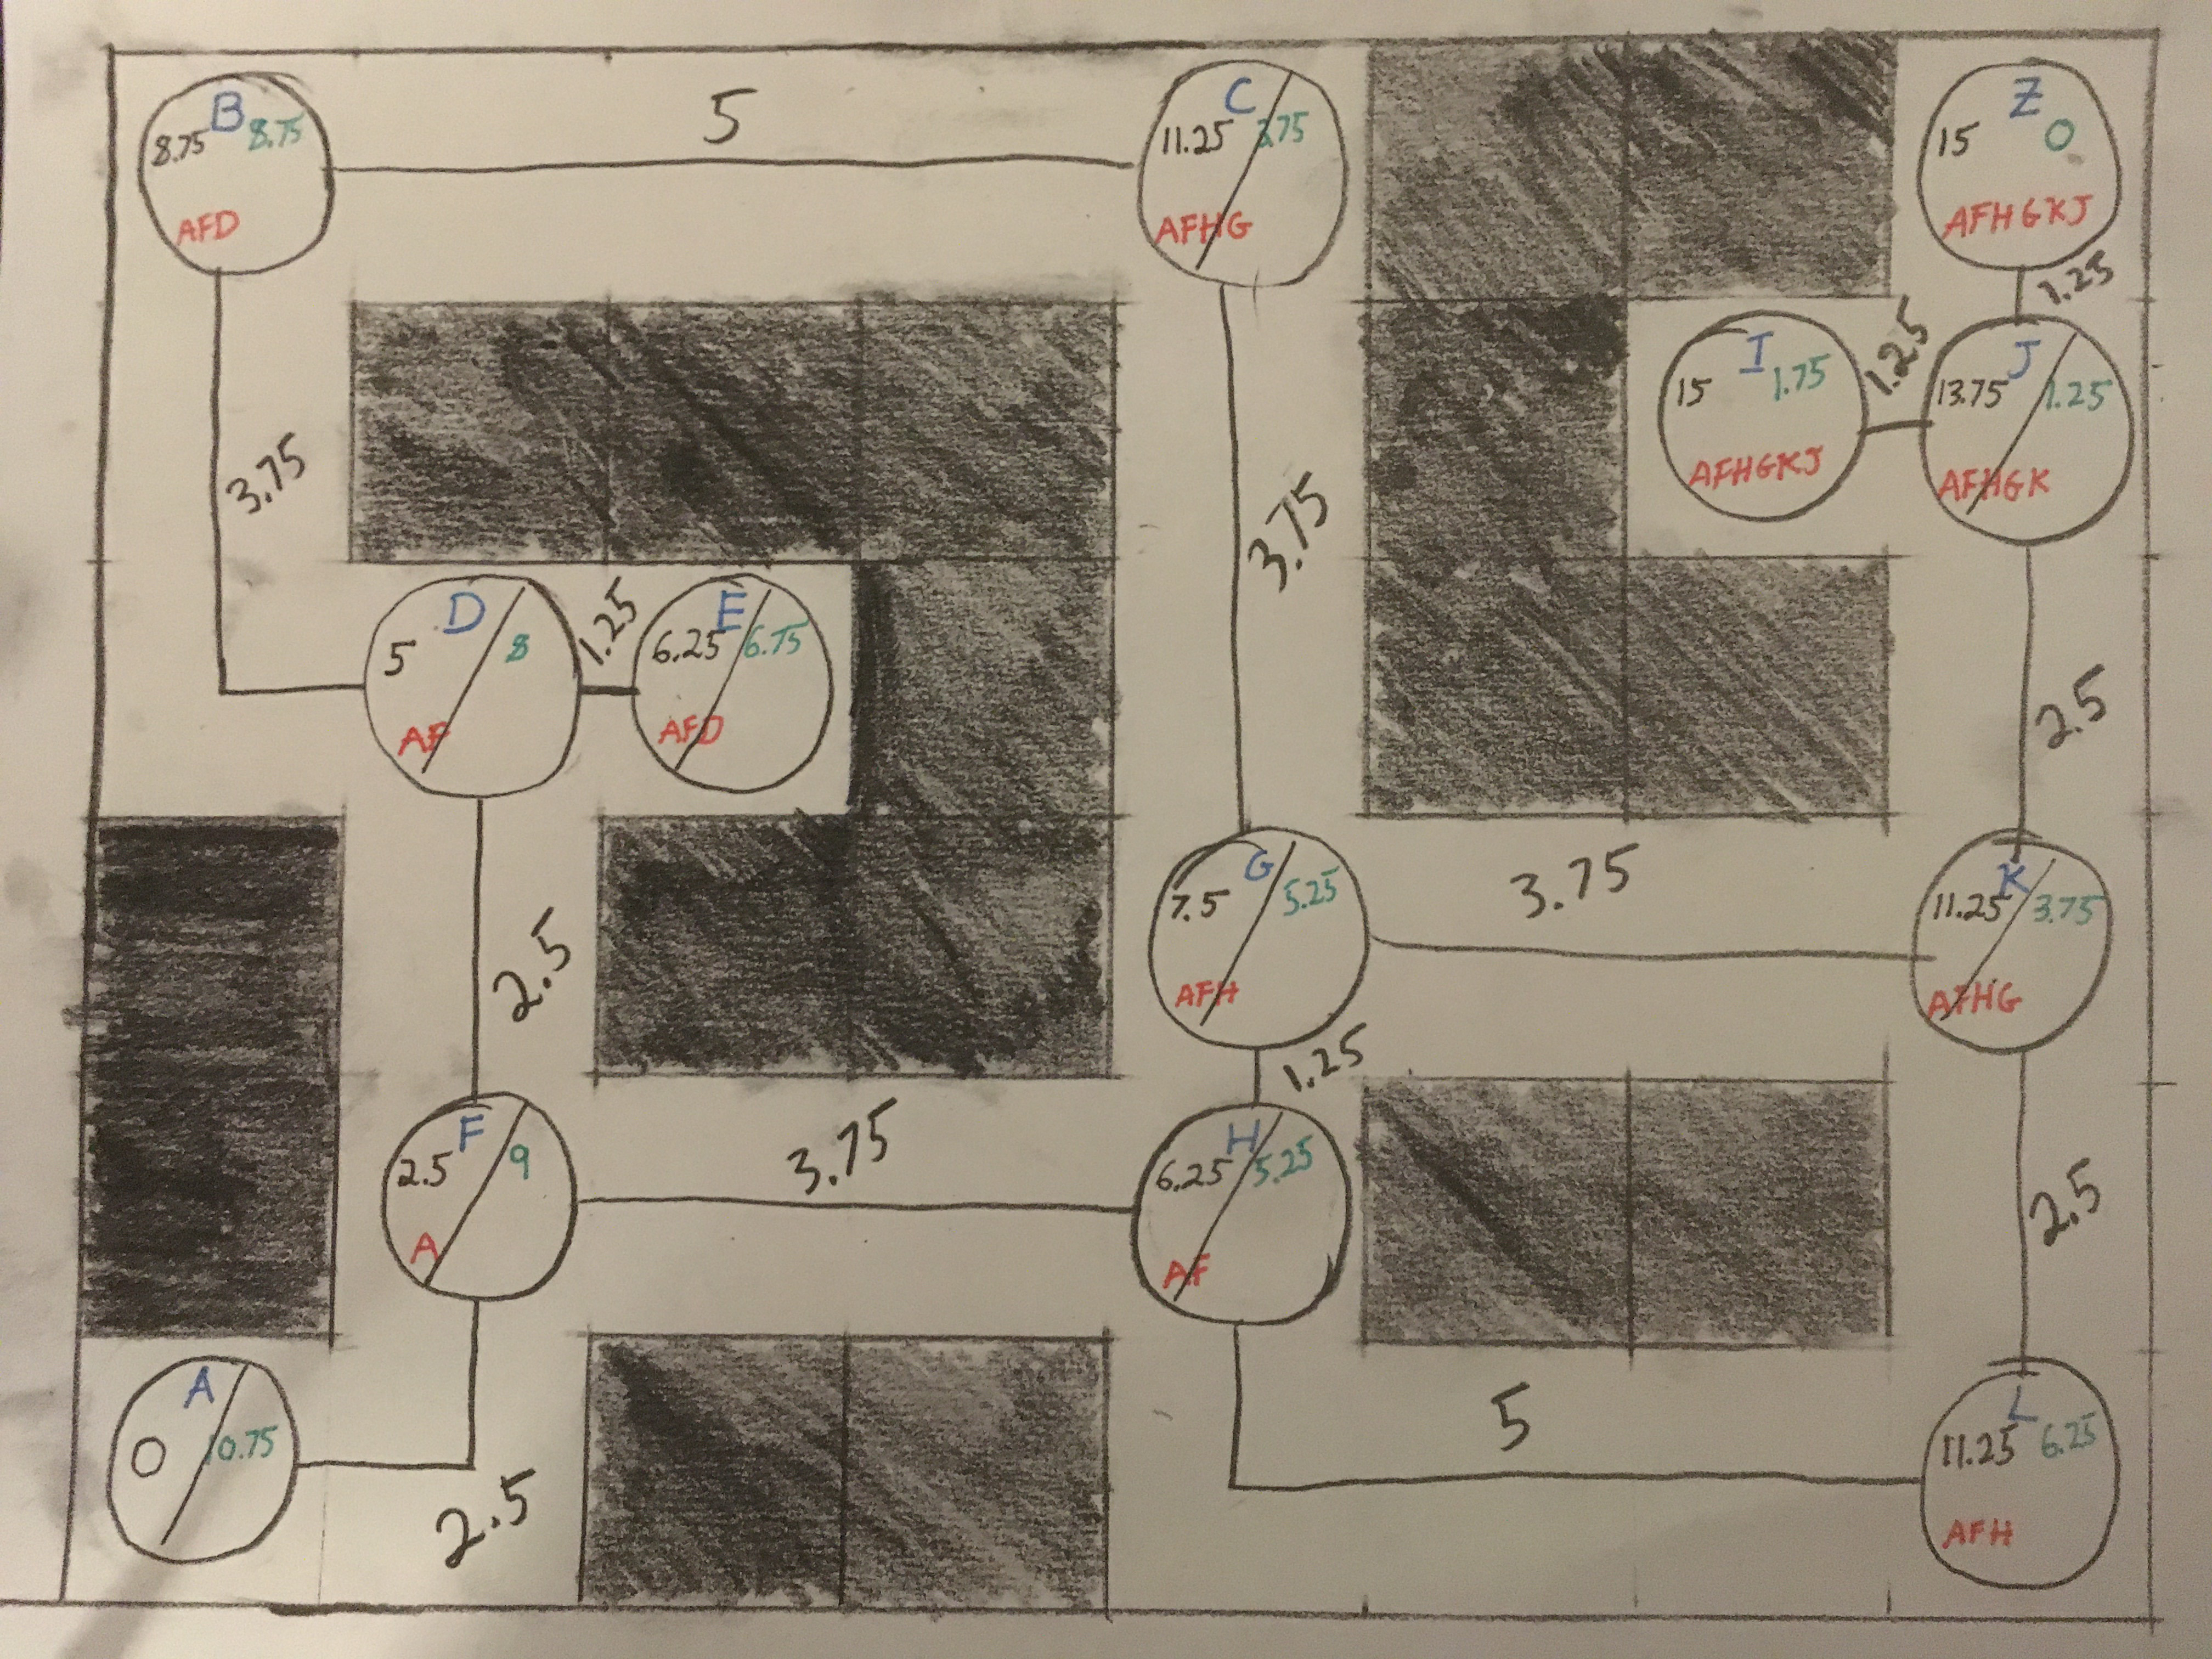 B
8.75 8.75
AFD
5
C
11.25 3.75
AFHG
Z
15 0
AFHGKJ
1.25
I
15 1.75
AFHGKJ
1.25
J
13.75 1.25
AFHGK
3.75
3.75
2.5
D
5 8
AF
1.25
E
6.25 6.75
AFD
G
7.5 5.25
AFH
3.75
K
11.25 3.75
AFHG
2.5
1.25
F
2.5 9
A
3.75
H
6.25 5.25
AF
2.5
A
0 10.75
2.5
5
L
11.25 6.25
AFH